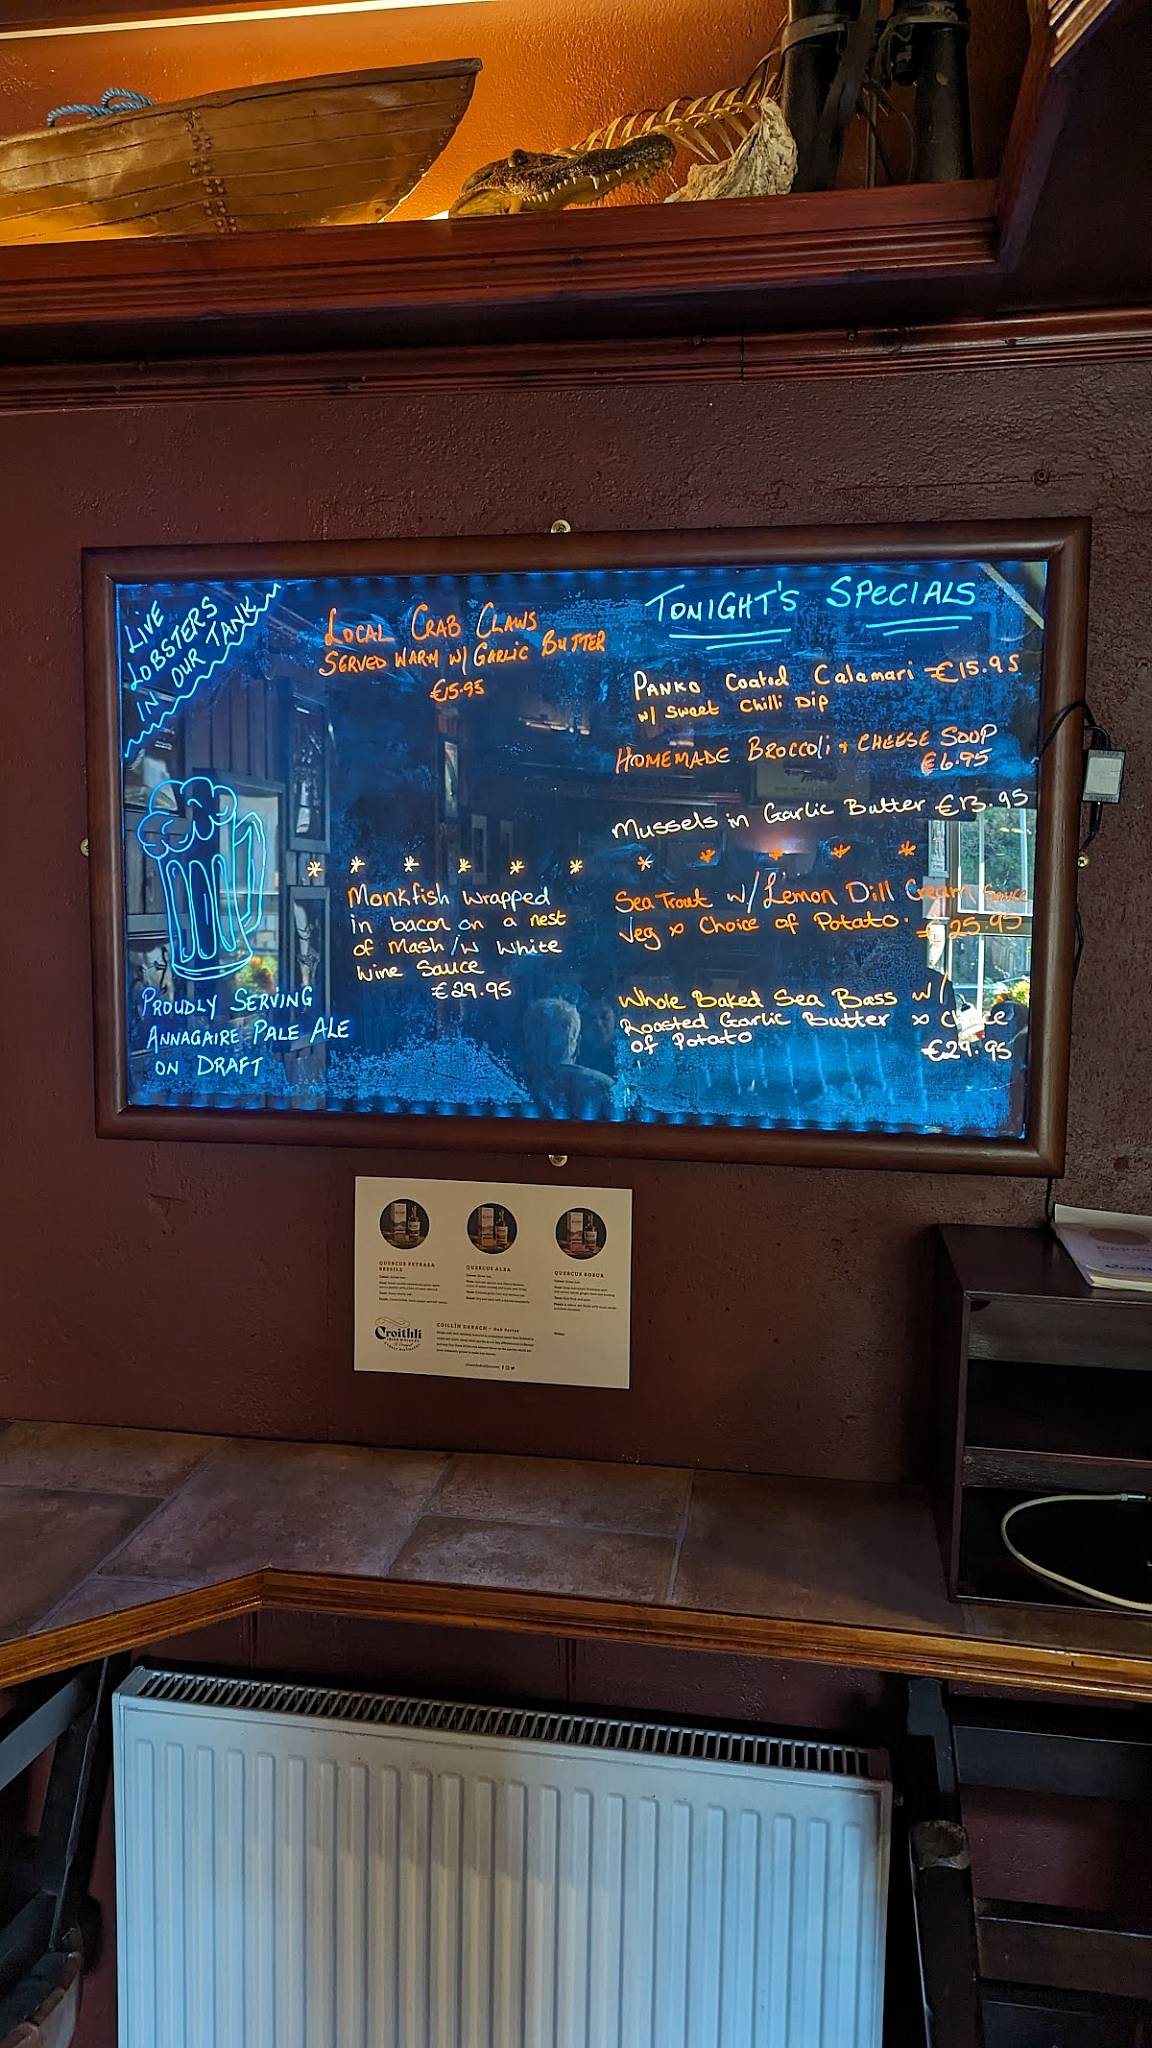 LIVE
LOBSTERS
IN OUR TANK
LOCAL CRAB CLAWS
SERVED WARM W/ GARLIC BUTTER
€15.95
TONIGHT'S SPECIALS
PANKO Coated Calamari - €15.95
w/ Sweet Chilli Dip
HOMEMADE BROCCOLi + CHEESE SOUP
€6.95
Mussels in Garlic Butter €13.95
* * * * * * * * * * *
Monkfish wrapped
in bacon on a nest
of Mash /w White
Wine Sauce
€29.95
Sea Trout w/ Lemon Dill Cream Sauce
Veg & Choice of Potato.
€25.95
Whole Baked Sea Bass w/
Roasted Garlic Butter & Choice
of Potato
€29.95
PROUDLY SERVING
ANNAGAIRE PALE ALE
ON DRAFT
QUERCUS PETRAEA
SESSILE
QUERCUS ALBA
QUERCUS ROBUR
Croithli
COILLÍN DARACH - Oak Series